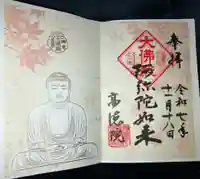 奉拝
令和七年
十一月十八日
大佛
阿弥陀如来
高徳院